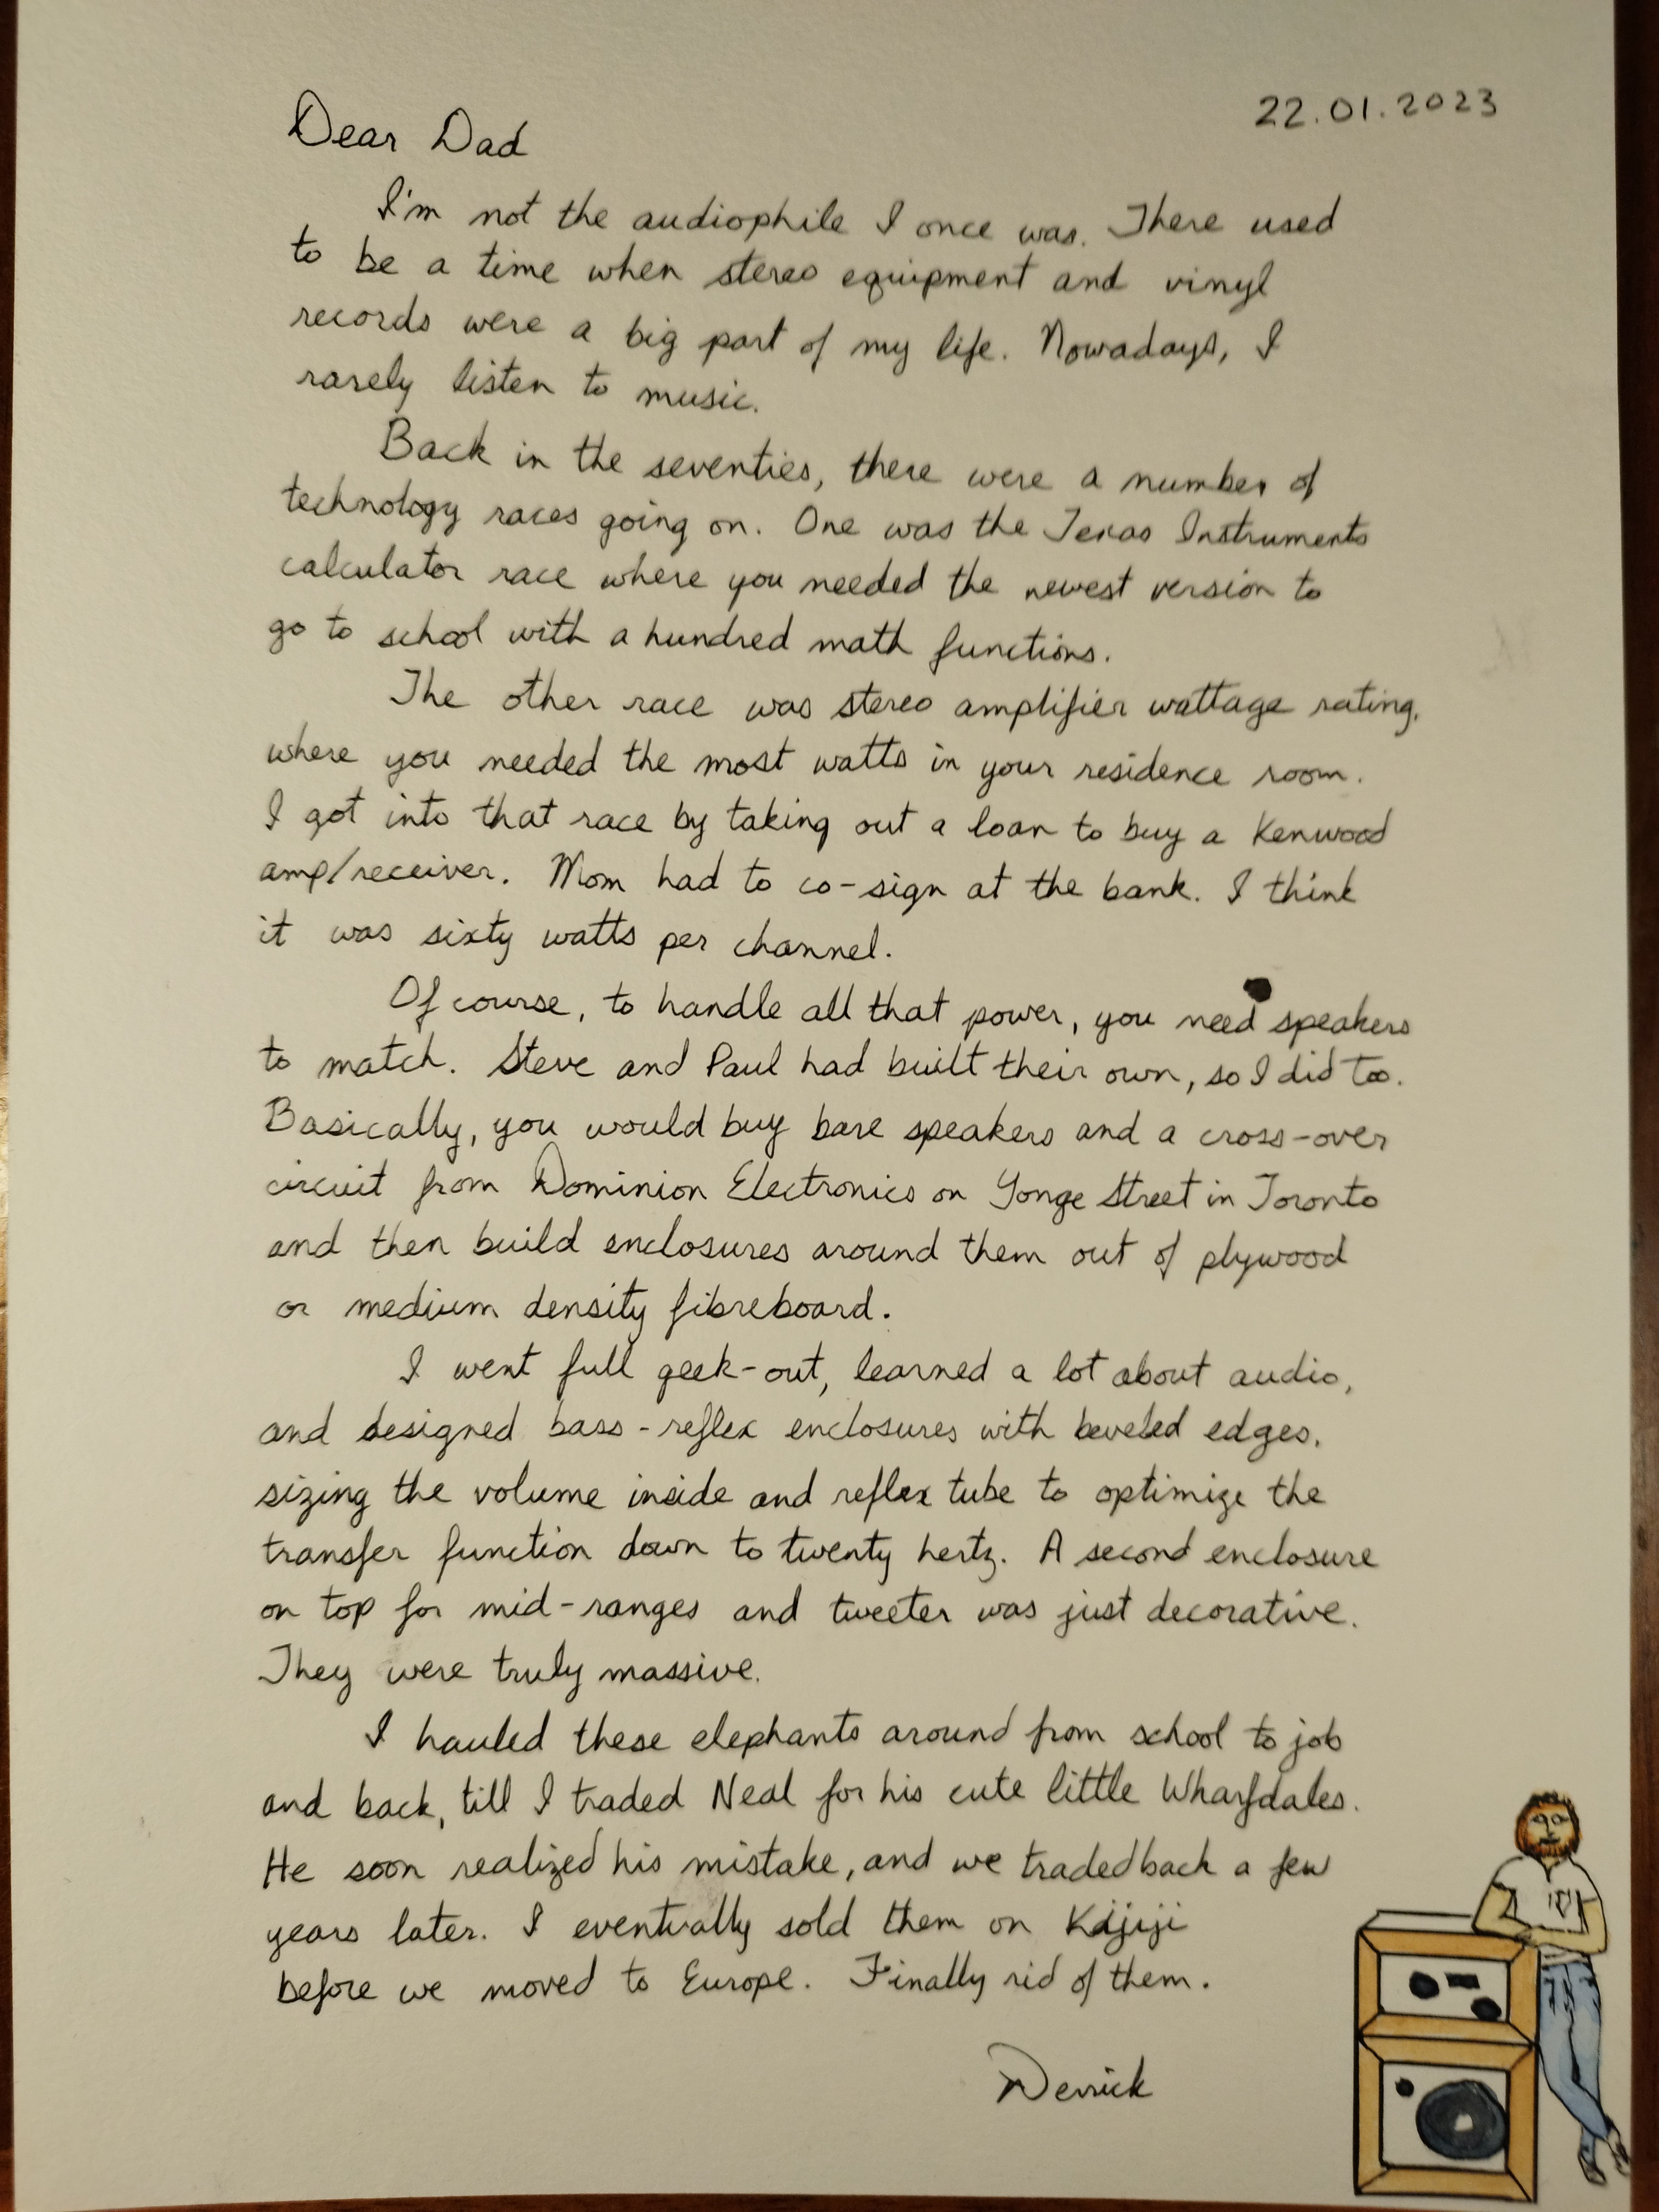 22.01.2023
Dear Dad
I'm not the audiophile I once was. There used
to be a time when stereo equipment and vinyl
records were a big part of my life. Nowadays, I
rarely listen to music.
Back in the seventies, there were a number of
technology races going on. One was the Texas Instruments
calculator race where you needed the newest version to
go to school with a hundred math functions.
The other race was stereo amplifier wattage rating,
where you needed the most watts in your residence room.
I got into that race by taking out a loan to buy a Kenwood
amp/receiver. Mom had to co-sign at the bank. I think
it was sixty watts per channel.
Of course, to handle all that power, you need speakers
to match. Steve and Paul had built their own, so I did too.
Basically, you would buy bare speakers and a cross-over
circuit from Dominion Electronics on Yonge Street in Toronto
and then build enclosures around them out of plywood
or medium density fibreboard.
I went full geek-out, learned a lot about audio,
and designed bass-reflex enclosures with beveled edges,
sizing the volume inside and reflex tube to optimize the
transfer function down to twenty hertz. A second enclosure
on top for mid-ranges and tweeter was just decorative.
They were truly massive.
I hauled these elephants around from school to job
and back, till I traded Neal for his cute little Wharfdales.
He soon realized his mistake, and we traded back a few
years later. I eventually sold them on Kijiji
before we moved to Europe. Finally rid of them.
Derrick